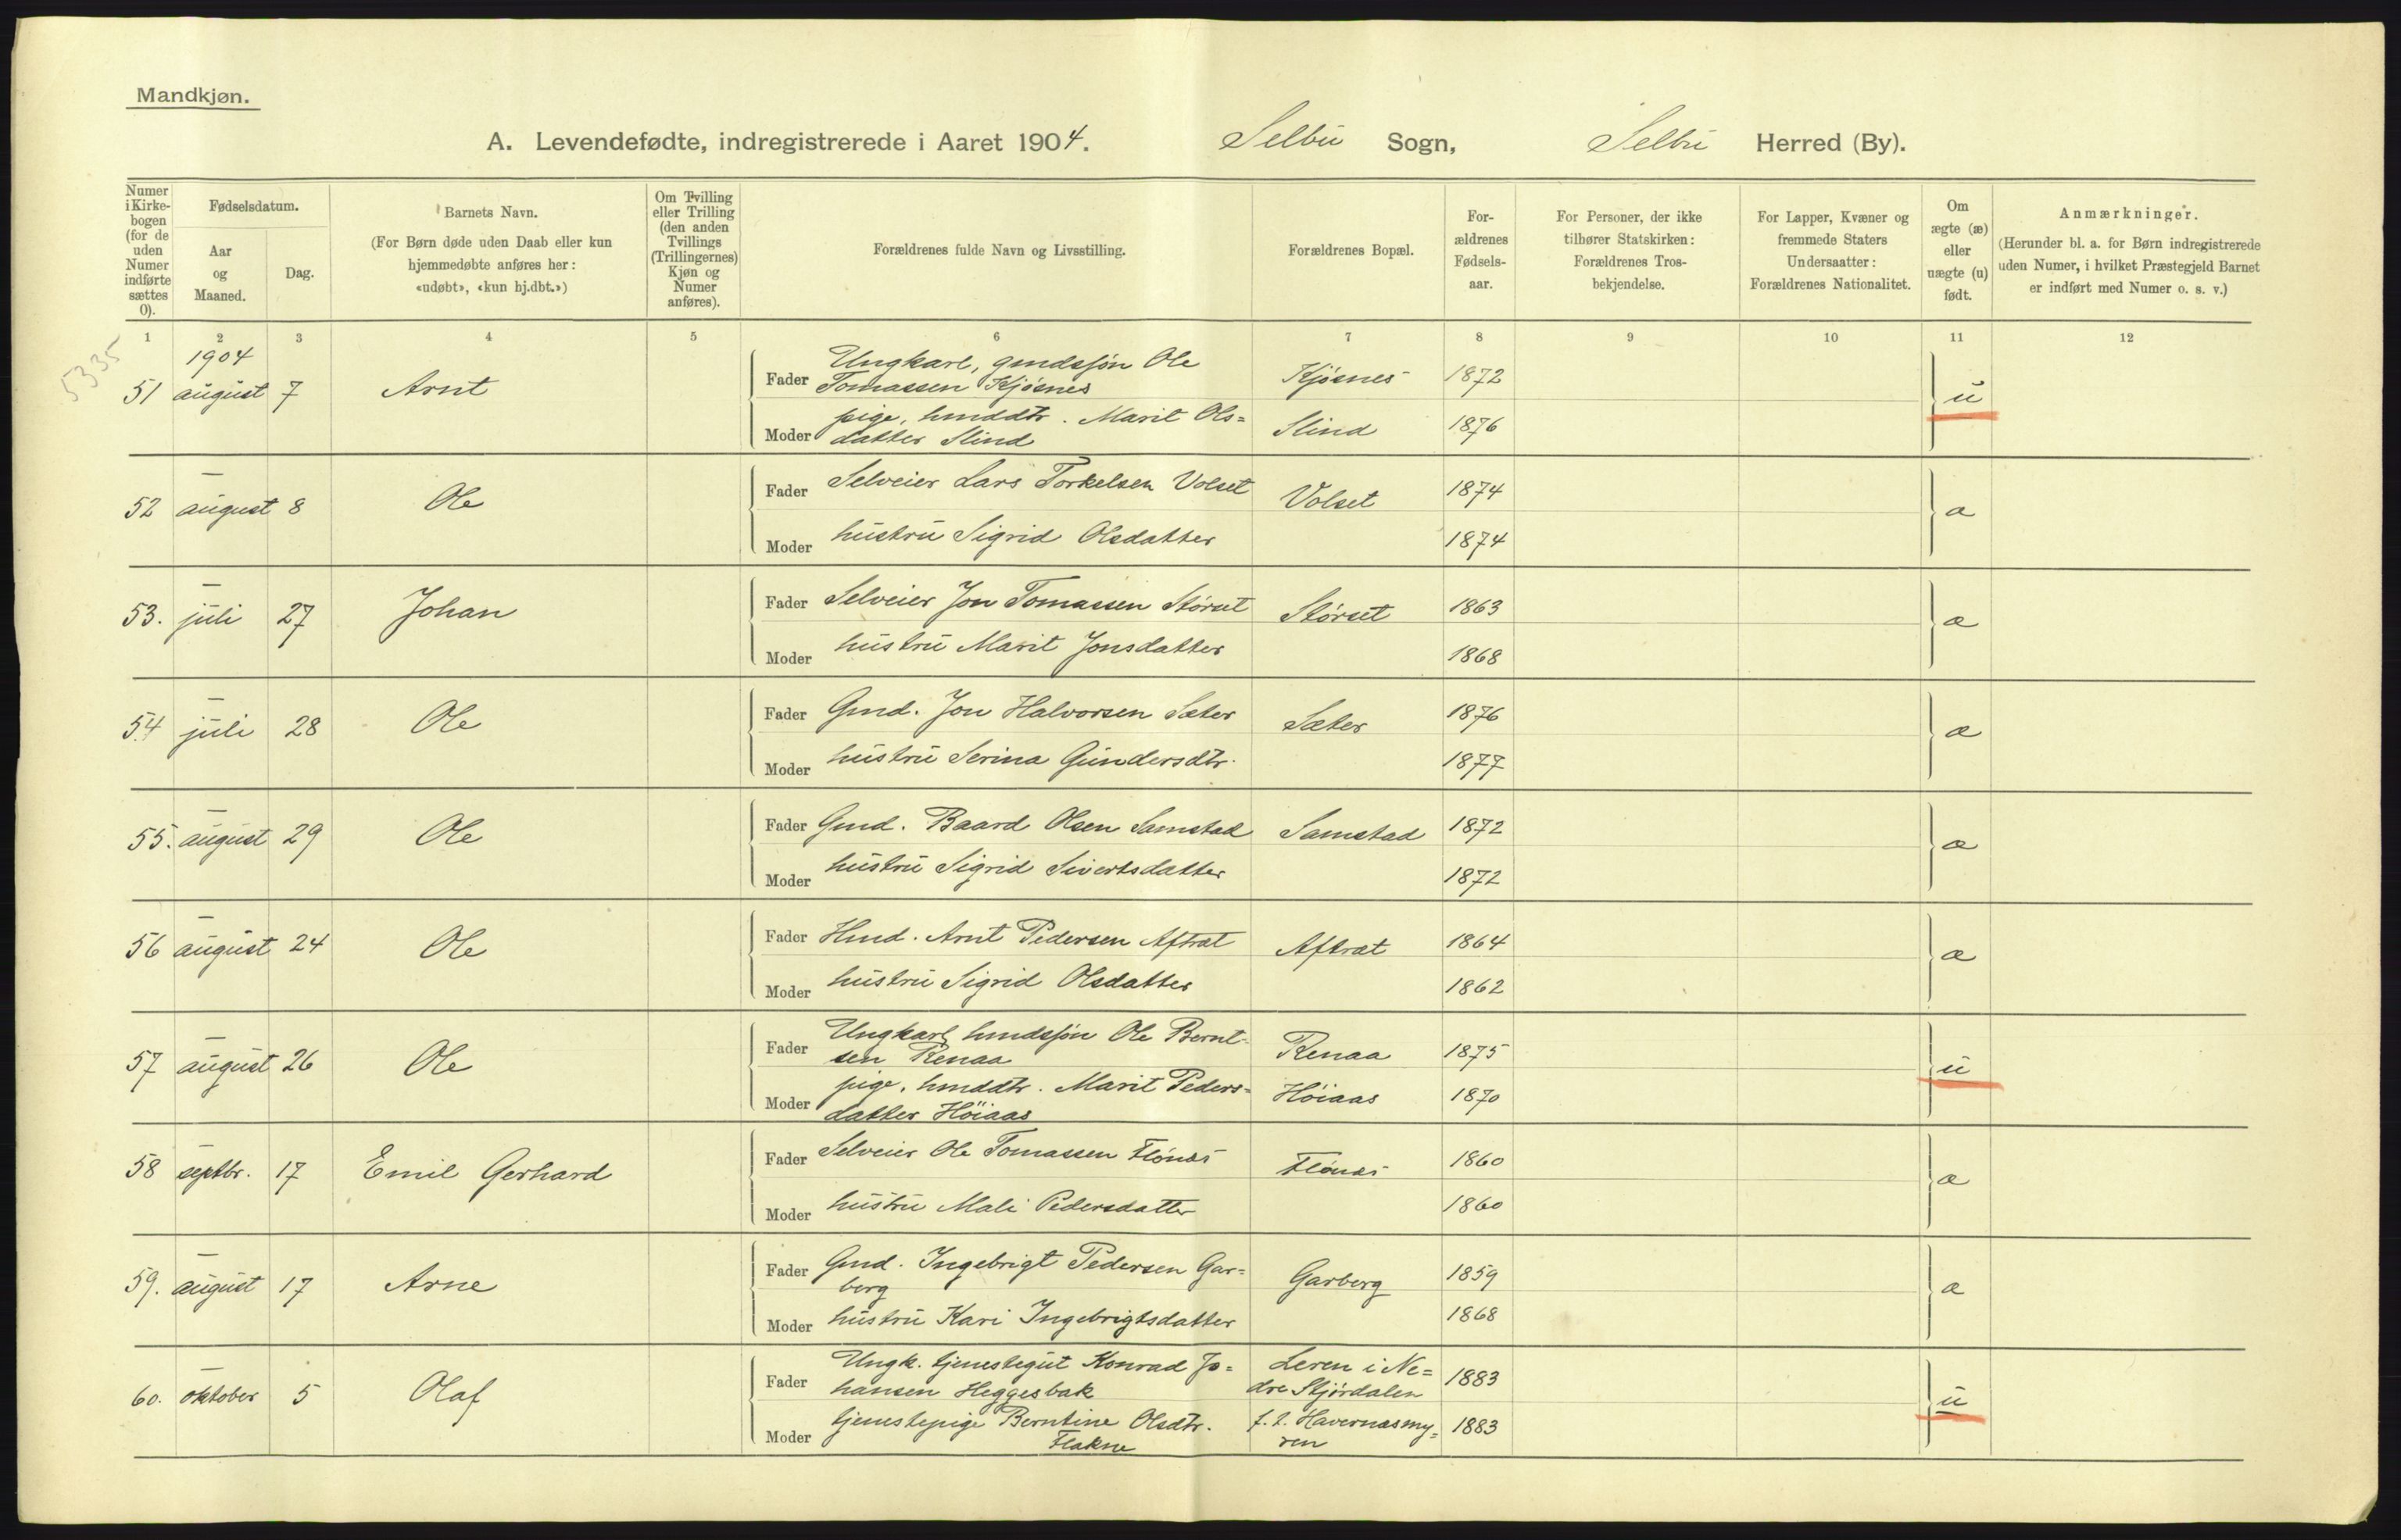 Mandkjøn.
A. Levendefødte, indregistrerede i Aaret 1904. Selbu Sogn, Selbu Herred (By).
Numer i Kirkebogen (for de uden Numer indførte sættes 0).
Fødselsdatum.
Aar og Maaned.
Dag.
Barnets Navn.
(For Børn døde uden Daab eller kun hjemmedøbte anføres her: «udøbt», «kun hj.dbt.»)
Om Tvilling eller Trilling (den anden Tvillings (Trillingernes) Kjøn og Numer anføres).
Forældrenes fulde Navn og Livsstilling.
Forældrenes Bopæl.
Forældrenes Fødselsaar.
For Personer, der ikke tilhører Statskirken: Forældrenes Trosbekjendelse.
For Lapper, Kvæner og fremmede Staters Undersaatter: Forældrenes Nationalitet.
Om ægte (æ) eller uægte (u) født.
Anmærkninger.
(Herunder bl. a. for Børn indregistrerede uden Numer, i hvilket Præstegjeld Barnet er indført med Numer o. s. v.)
1 2 3 4 5 6 7 8 9 10 11 12
5335
1904
51 august 7 Arnt
Fader Ungkarl, gmdssøn Ole
Tomassen Kjøsnes Kjøsnes 1872 u
Moder pige, hmddtr. Marit Ols=
datter Slind Slind 1876
— 52 august 8 Ole
Fader Selveier Lars Torkelsen Volset Volset 1874 æ
Moder hustru Sigrid Olsdatter 1874
— 53. juli 27 Johan
Fader Selveier Jon Tomassen Størset Størset 1863 æ
Moder hustru Marit Jonsdatter 1868
— 54 juli 28 Ole
Fader Gmd. Jon Halvorsen Sæter Sæter 1876 æ
Moder hustru Serina Gundersdtr. 1877
— 55. august 29 Ole
Fader Gmd. Baard Olsen Samstad Samstad 1872 æ
Moder hustru Sigrid Sivertsdatter 1872
— 56 august 24 Ole
Fader Hmd. Arnt Pedersen Aftret Aftret 1864 æ
Moder hustru Sigrid Olsdatter 1862
— 57 august 26 Ole
Fader Ungkarl, hmdssøn Ole Bernt-
sen Renaa Renaa 1875 u
Moder pige, hmddtr. Marit Peders=
datter Höiaas Höiaas 1870
— 58 septbr. 17 Emil Gerhard
Fader Selveier Ole Tomassen Flónes Flónes 1860 æ
Moder hustru Mali Pedersdatter 1860
— 59. august 17 Arne
Fader Gmd. Ingebrigt Pedersen Gar=
berg Garberg 1859 æ
Moder hustru Kari Ingebrigtsdatter 1868
— 60. oktober 5 Olaf
Fader Ungk. tjenestegut Konrad Jo=
hansen Heggesbak Leren i Ne=
dre Stjørdalen 1883 u
Moder tjenestepige Berntine Olsdtr.
Flakne f. t. Havernasmy=
ren 1883